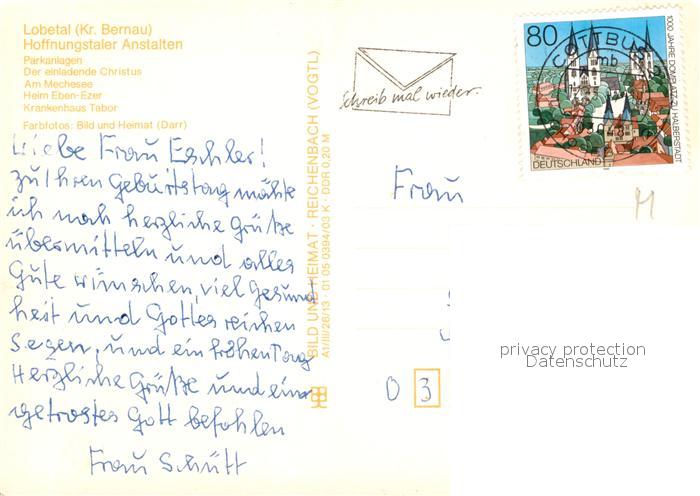 Lobetal (Kr. Bernau)
Hoffnungstaler Anstalten
Parkanlagen
Der einladende Christus
Am Mechesee
Heim Eben-Ezer
Krankenhaus Tabor
Farbfotos: Bild und Heimat (Darr)
Liebe Frau Eschler!
zu Ihren Geburtstag möhte
ich noh herzliche Grüße
übermitteln und alles
Gute wünschen, viel Gesund
heit und Gottes reichen
Segen, und ein frohen Tag
Herzliche Grüße und ein
getrostes Gott befohlen
Frau Schütt
BILD UND HEIMAT · REICHENBACH (VOGTL)
A1/III/26/13 · 01 05 0394/03 K · DDR 0,20 M
Schreib mal wieder.
80
COTTBUS
mb
1000 JAHRE DOMPLATZ ZU HALBERSTADT
DEUTSCHLAND
Frau
M
0 3
privacy protection
Datenschutz